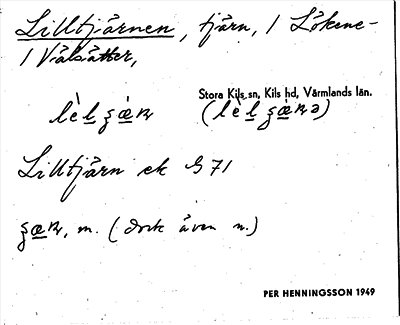 Lilltjärnen, tjärn, 1 Lökene-
1 Välsätter,
Stora Kils sn, Kils hd, Värmlands län.
Lilltjärn ek G 71
m. (dock även n.)
PER HENNINGSSON 1949